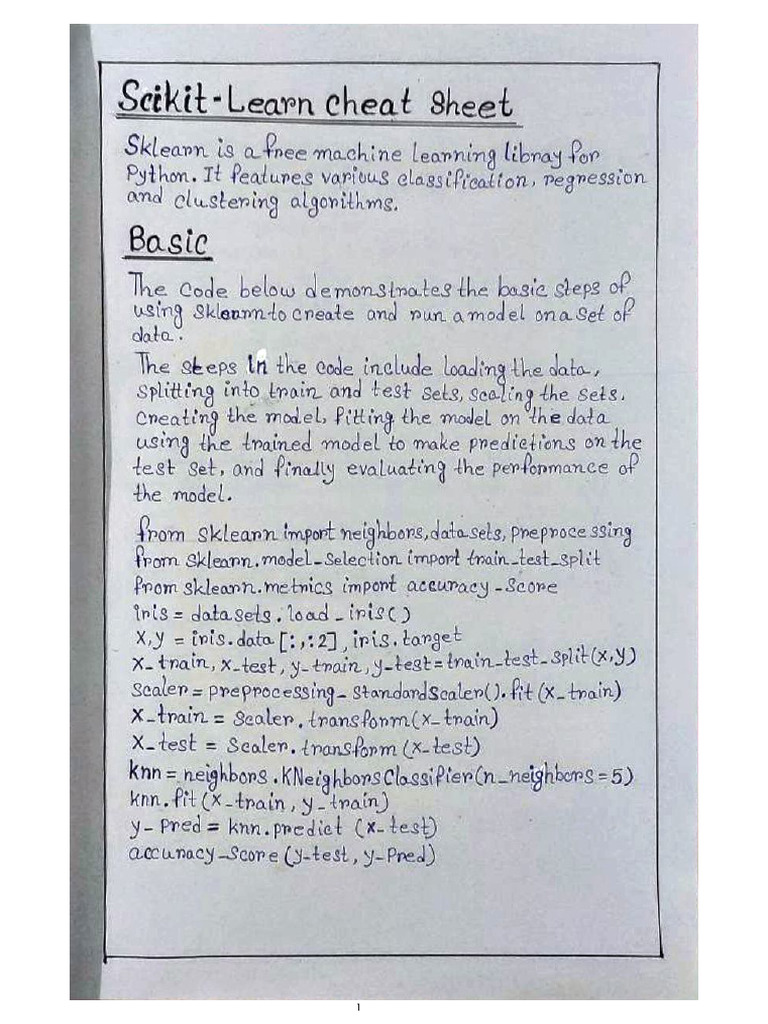 Scikit-Learn cheat sheet
Sklearn is a free machine learning libray for
Python. It features various classification, regression
and clustering algorithms.
Basic
The code below demonstrates the basic steps of
using sklearn to create and run a model on a set of
data.
The steps in the code include loading the data,
splitting into train and test sets, scaling the sets.
creating the model, fitting the model on the data
using the trained model to make predictions on the
test set, and finally evaluating the performance of
the model.
from sklearn import neighbors, datasets, preprocessing
from sklearn.model_selection import train_test_split
from sklearn.metrics import accuracy_score
iris = datasets.load_iris()
x,y = iris.data[:,:2], iris.target
x_train, x_test, y_train, y_test=train_test_split(x,y)
scaler = preprocessing_standardscaler().fit(x_train)
x_train = scaler.transform(x_train)
x_test = scaler.transform(x_test)
knn = neighbors.KNeighborsClassifier(n_neighbors=5)
knn.fit(x_train, y_train)
y_pred = knn.predict (x_test)
accuracy_score(y_test, y_pred)
1